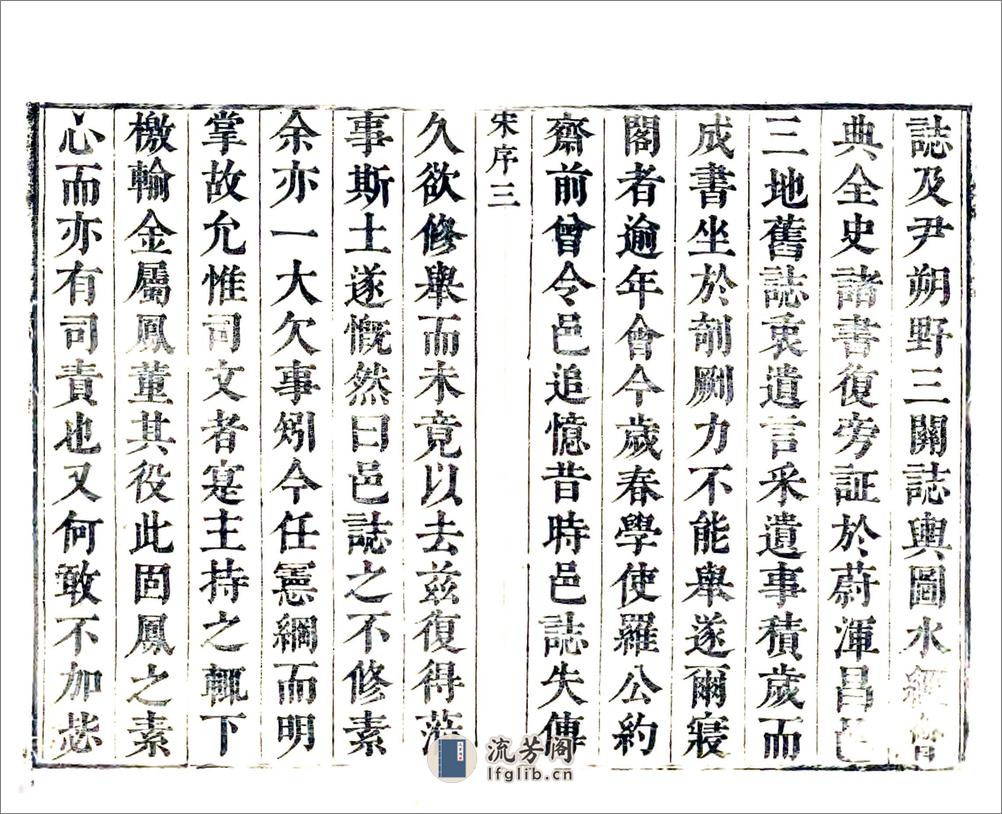 誌及尹朔野三關誌輿圖水經會
典全史諸書復旁証於蔚渾昌邑
三地舊誌裒遺言采遺事積歲而
成書坐於剞劂力不能舉遂爾寢
閣者逾年會今歲春學使羅公約
齋前曾令邑追憶昔時邑誌失傳
宋序三
久欲修舉而未竟以去兹復得蒞
事斯土遂慨然曰邑誌之不修素
余亦一大欠事矧今任憲綱而明
掌故允惟司文者寔主持之輒下
檄輸金屬鳳董其役此固鳳之素
心而亦有司責也又何敢不加毖
流芳閣
lfglib.cn